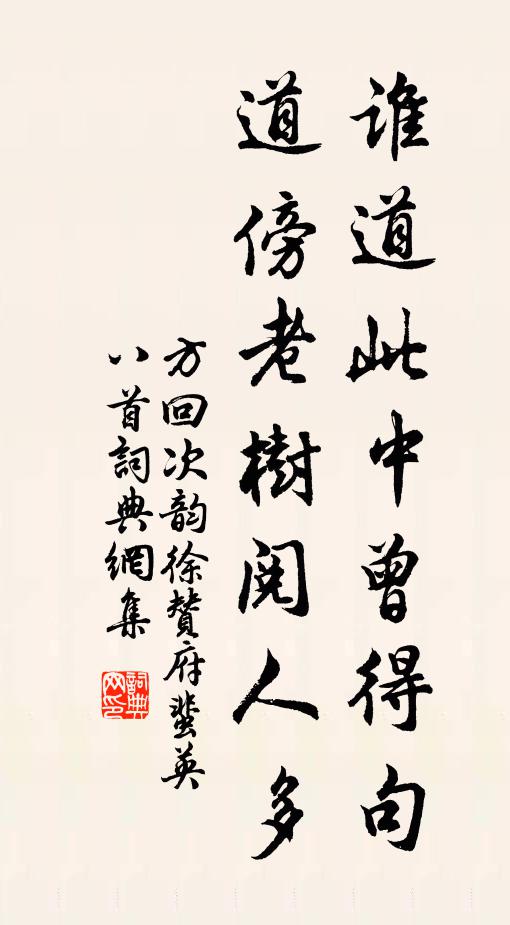 誰道此中曾得句
道傍老樹閱人多
方回次韵徐贊府蜚英
八首詞典網集
詞典网印